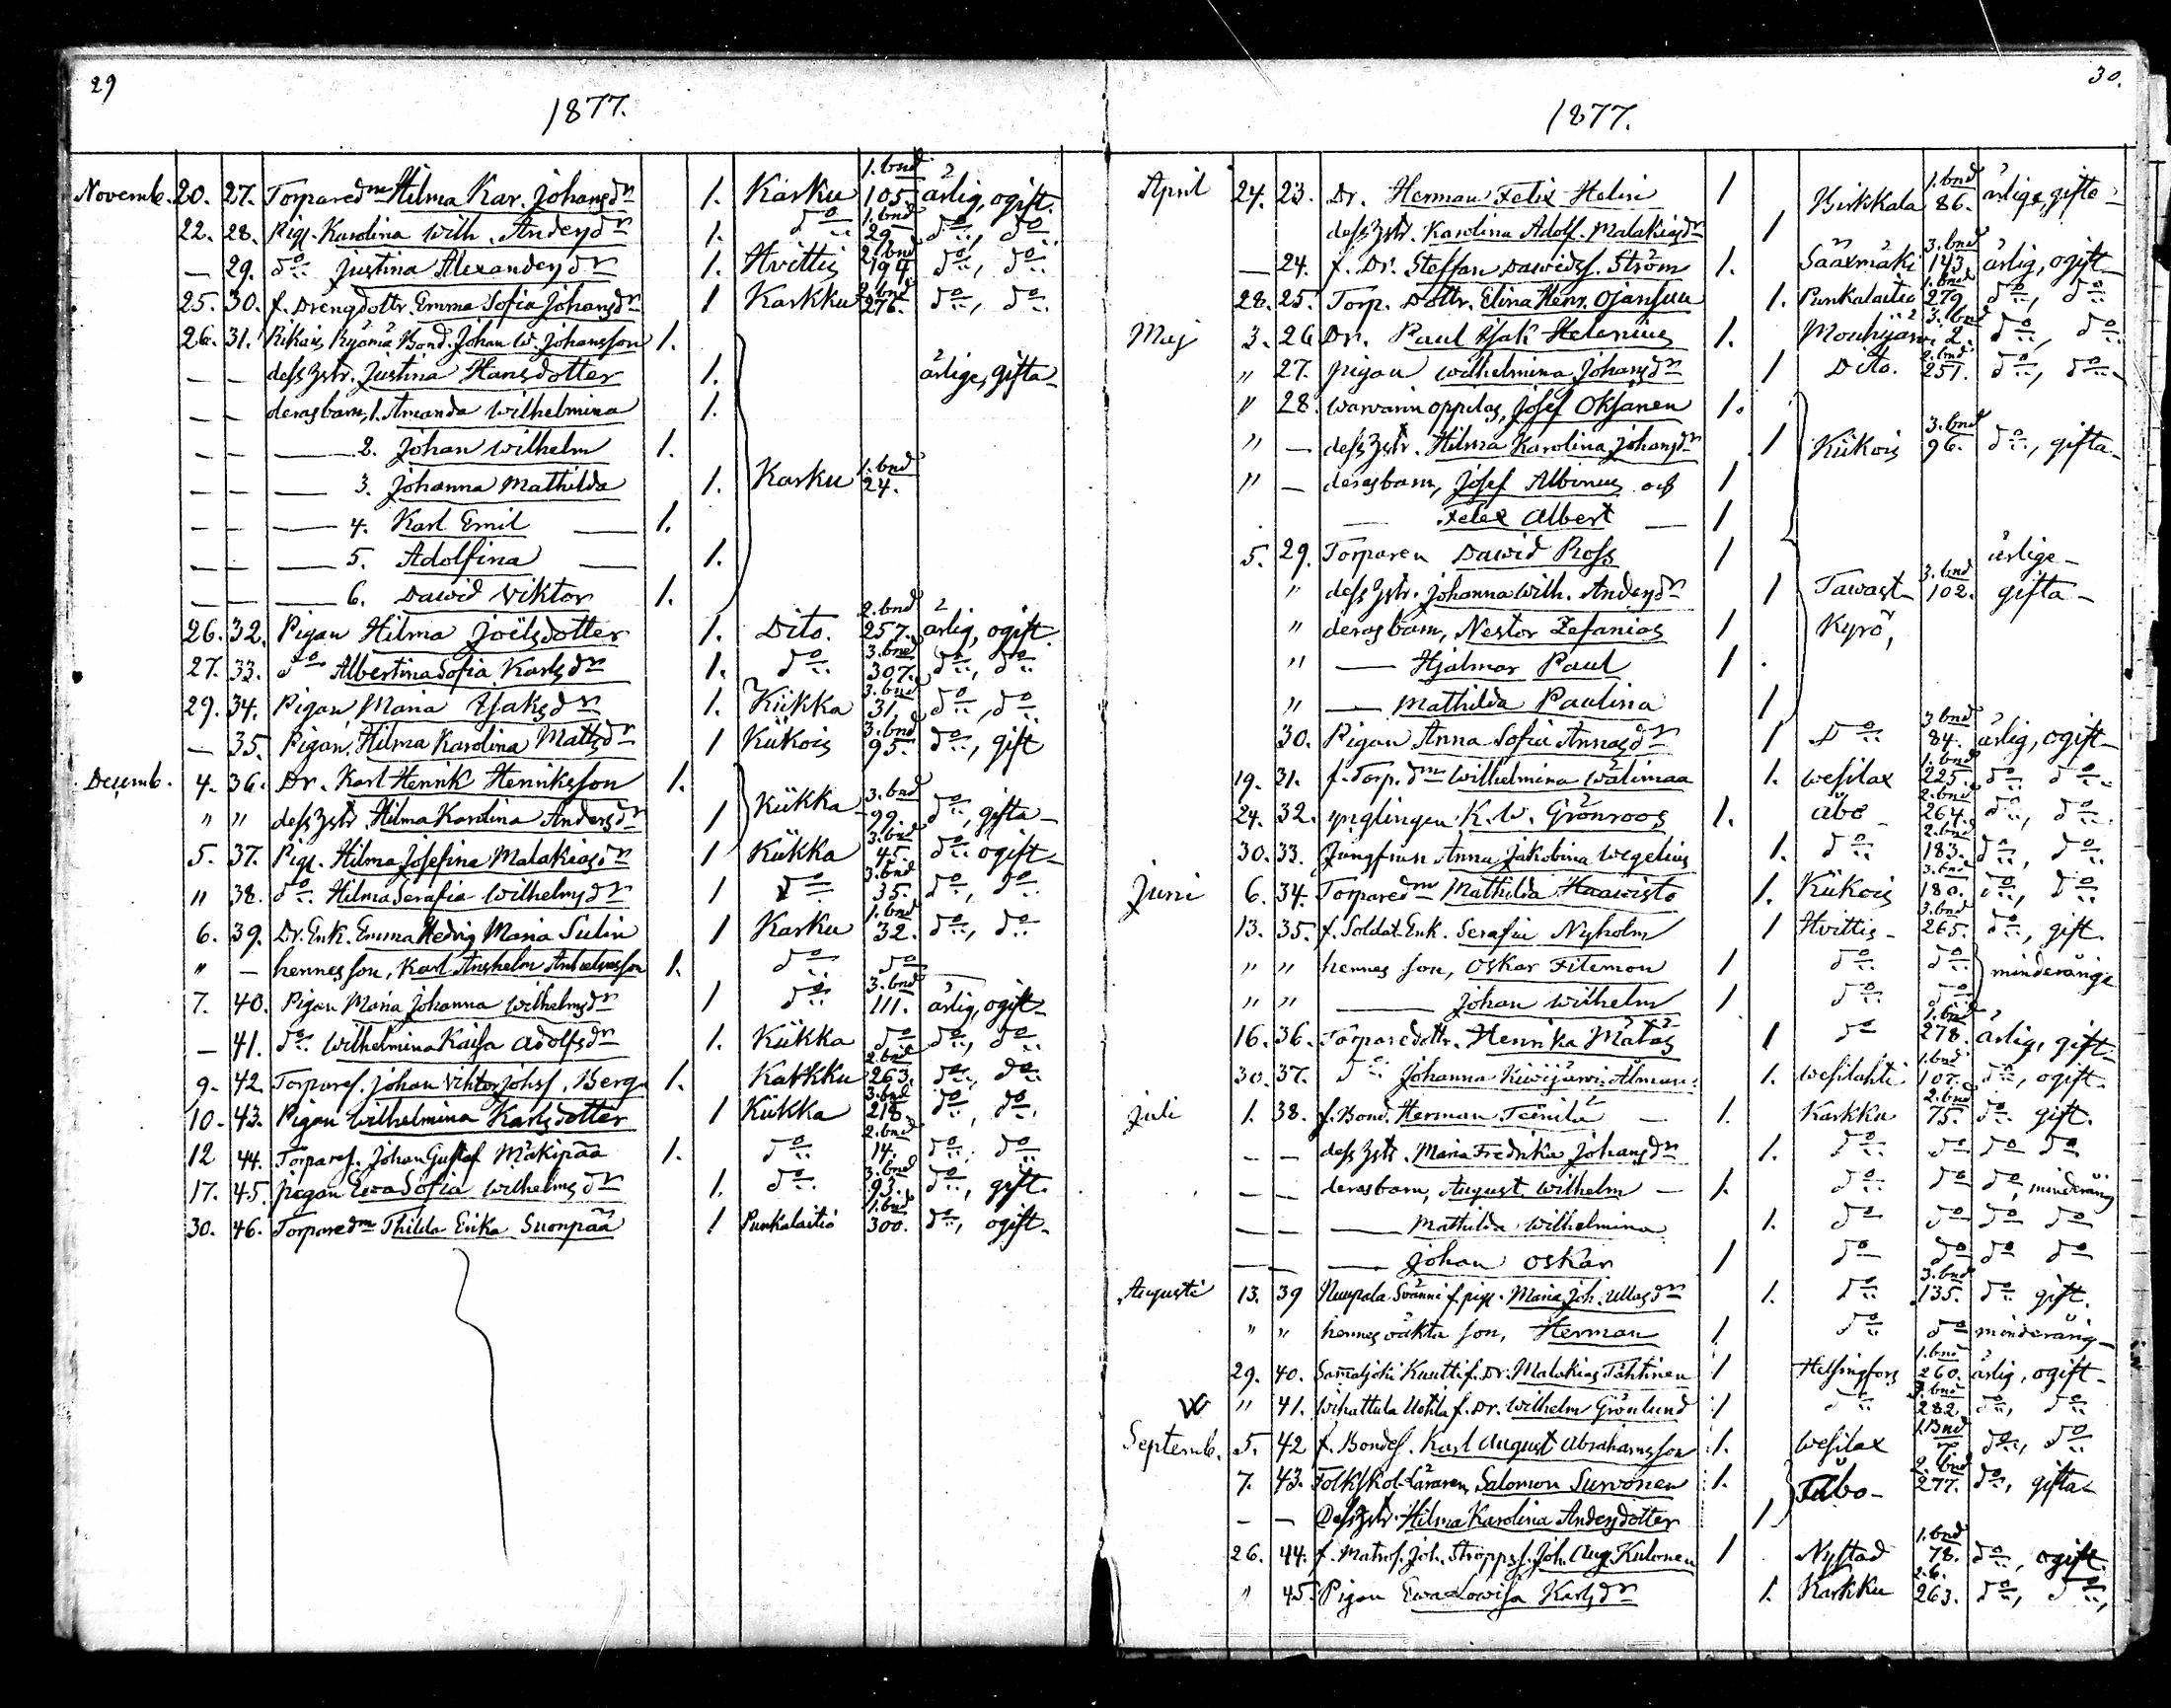 29
1877.
Novemb. 20. 27. Torparedr Hilma Kar. Johansdr 1. Karku 1.bnd 105. ärlig, ogift.
22. 28. Pig. Karolina Wilh. Andersdr 1. do 1.bnd 29 do, do
— 29. do Justina Alexandersdr 1. Hvittis 2.bnd 194. do, do
25. 30. f. Drengdottr. Emma Sofia Johansdr 1 Karkku 2.bnd 276. do, do
26. 31. Rikais Kyömä Bond. Johan W. Johansson 1.
— — dess hstr. Justina Hansdotter 1. ärlige, gifta
— — deras barn, 1. Amanda Wilhelmina 1.
— — — 2. Johan Wilhelm 1.
— — — 3. Johanna Mathilda 1. Karku 1.bnd 24.
— — — 4. Karl Emil — 1.
— — — 5. Adolfina — 1.
— — — 6. Dawid Viktor 1.
26. 32. Pigan Hilma Joëlsdotter 1. Dito. 2.bnd 257. ärlig, ogift.
27. 33. do Albertina Sofia Karlsdr 1. do 3.bnd 307. do, do
29. 34. Pigan Maria Isaksdr 1. Kiikka 3.bnd 31, do, do
— 35. Pigan Hilma Karolina Mattsdr 1 Kiikois 3.bnd 95. do, gift
Decemb. 4. 36. Dr. Karl Henrik Henriksson 1.
" " dess hstr. Hilma Karolina Andersdr 1 Kiikka 3.bnd 99. do, gifta
5. 37. Pig. Hilma Josefina Malakiasdr 1 Kiikka 3.bnd 45. do ogift
" 38. do Hilma Serafia Wilhelmsdr 1 do 3.bnd 35. do, do
6. 39. Dr. Enk. Emma Hedvig Maria Sulin 1 Karku 1.bnd 32. do, do
" — hennes son, Karl Anshelm Anhelmsson 1. do do
7. 40. Pigan Maria Johanna Wilhelmsdr 1 do 3.bnd 111. ärlig, ogift
— 41. do Wilhelmina Kaisa Adolfsdr 1. Kiikka do do, do
9. 42. Torpares. Johan Viktor Johss. Berg 1. Karkku 2.bnd 263. do, do
10. 43. Pigan Wilhelmina Karlsdotter 1 Kiikka 3.bnd 218. do, do.
12 44. Torpares. Johan Gustaf Mäkipää 1. do 2.bnd 14. do. do
17. 45. pigan Ewa Sofia Wilhelmsdr 1. do 3.bnd 93. do, gift.
30. 46. Torparedr Thilda Erika Suonpää 1 Punkalaitio 1.bnd 300. do, ogift
30.
1877.
April 24. 23. Dr. Herman Felix Helin 1 Birkkala 1.bnd 86. ärlige, gifte
dess hstr. Karolina Adolf. Malakiasdr 1
— 24. f. Dr. Steffan Dawidss. Ström 1. Sääxmäki 3.bnd 143. ärlig, ogift
28. 25. Torp. Dottr. Elina Henr. Ojansuu 1. Punkalaitio 1.bnd 279. do, do
Maj 3. 26 Dr. Paul Isak Helenius 1. Mouhijärvi 3.bnd 2. do, do
" 27. pigan Wilhelmina Johansdr 1 Dito. 2.bnd 251. do, do
" 28. Warvarin oppilas, Josef Oksanen 1.
" — dess hstr. Hilma Karolina Johansdr 1 Kiikois 3.bnd 96. do, gifta
" — deras barn, Josef Albinus och 1
— Felix Albert — 1
5. 29. Torparen Dawid Ross 1 ärlige
" dess hstr. Johanna Wilh. Andersdr 1 Tawast- 3.bnd 102. gifta
" deras barn, Nestor Zefanias 1 Kyrö,
" — Hjalmar Paul 1
" — Mathilda Paulina 1
30. Pigan Anna Sofia Annasdr 1 Do 3.bnd 84. ärlig, ogift
19. 31. f. Torp. dr Wilhelmina Wälimaa 1. Wesilax 1.bnd 225. do do
24. 32. ynglingen K. W. Grönroos 1. Åbo 2.bnd 264. do, do
30. 33. Jungfrun Anna Jakobina Wegelius 1. do 2.bnd 183. do, do
Juni 6. 34. Torparedr Mathilda Haawisto 1. Kiikois 3.bnd 180. do, do
13. 35. f. Soldat. Enk. Serafia Nyholm 1 Hvittis 3.bnd 265. do, gift.
" " hennes son, Oskar Filemon 1 do do minderårige
" " — Johan Wilhelm 1 do do
16. 36. Torparedottr. Henrika Mätäs 1 do 1.bnd 278. ärlig, gift
30. 37. do Johanna Kiwijärwi 1. Wesilahti 1.bnd 107. do, ogift.
Juli 1. 38. f. Bond. Herman Teinilä — 1. Karkku 2.bnd 75. do gift.
— — dess hstr. Maria Fredrika Johansdr 1. do do do do
— — deras barn, August Wilhelm — 1. do do do, minderårig
— — — Mathilda Wilhelmina 1. do do do do
— — — Johan Oskar 1 do do do do
Augusti 13. 39 Nuupala Svänni f. pig. Maria Joh. Ullasdr 1. do 3.bnd 135. do gift.
" " hennes oäkta son, Herman 1 do do minderårig
29. 40. Sammaljoki Kuutti f. Dr. Malakias Tähtinen 1 Helsingfors 1.bnd 260. ärlig, ogift
" 41. Wihattula Uotila f. Dr. Wilhelm Grönlund 1 do 3.bnd 282 do, do
Septemb. 5. 42 f. Bondes. Karl August Abrahamsson 1. Wesilax 1.Bnd 7. do, do
7. 43. Folkskol-läraren Salomon Survonen 1. Åbo 2.bnd 277. do, gifta
— — Dess hstr. Hilma Karolina Andersdotter 1
26. 44. f. Matros. Joh. Ströpps s. Joh. Aug. Kulonen 1 Nystad 1.bnd 78. do, ogift
" 45. Pigan Ewa Lowisa Karlsdr 1. Karkku 2.b. 263. do, do,